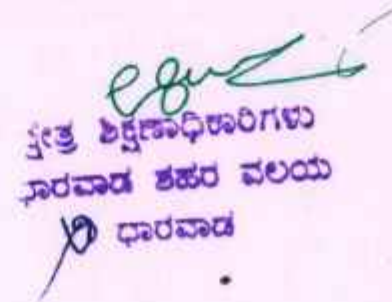 ಕ್ಷೇತ್ರ ಶಿಕ್ಷಣಾಧಿಕಾರಿಗಳು
ಧಾರವಾಡ ಶಹರ ವಲಯ
ಧಾರವಾಡ